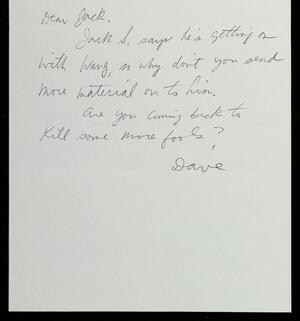 Dear Jack.
Jack S. says he's getting on
with Wang, so why don't you send
more material on to him.
Are you coming back to
kill some more fools?
Dave